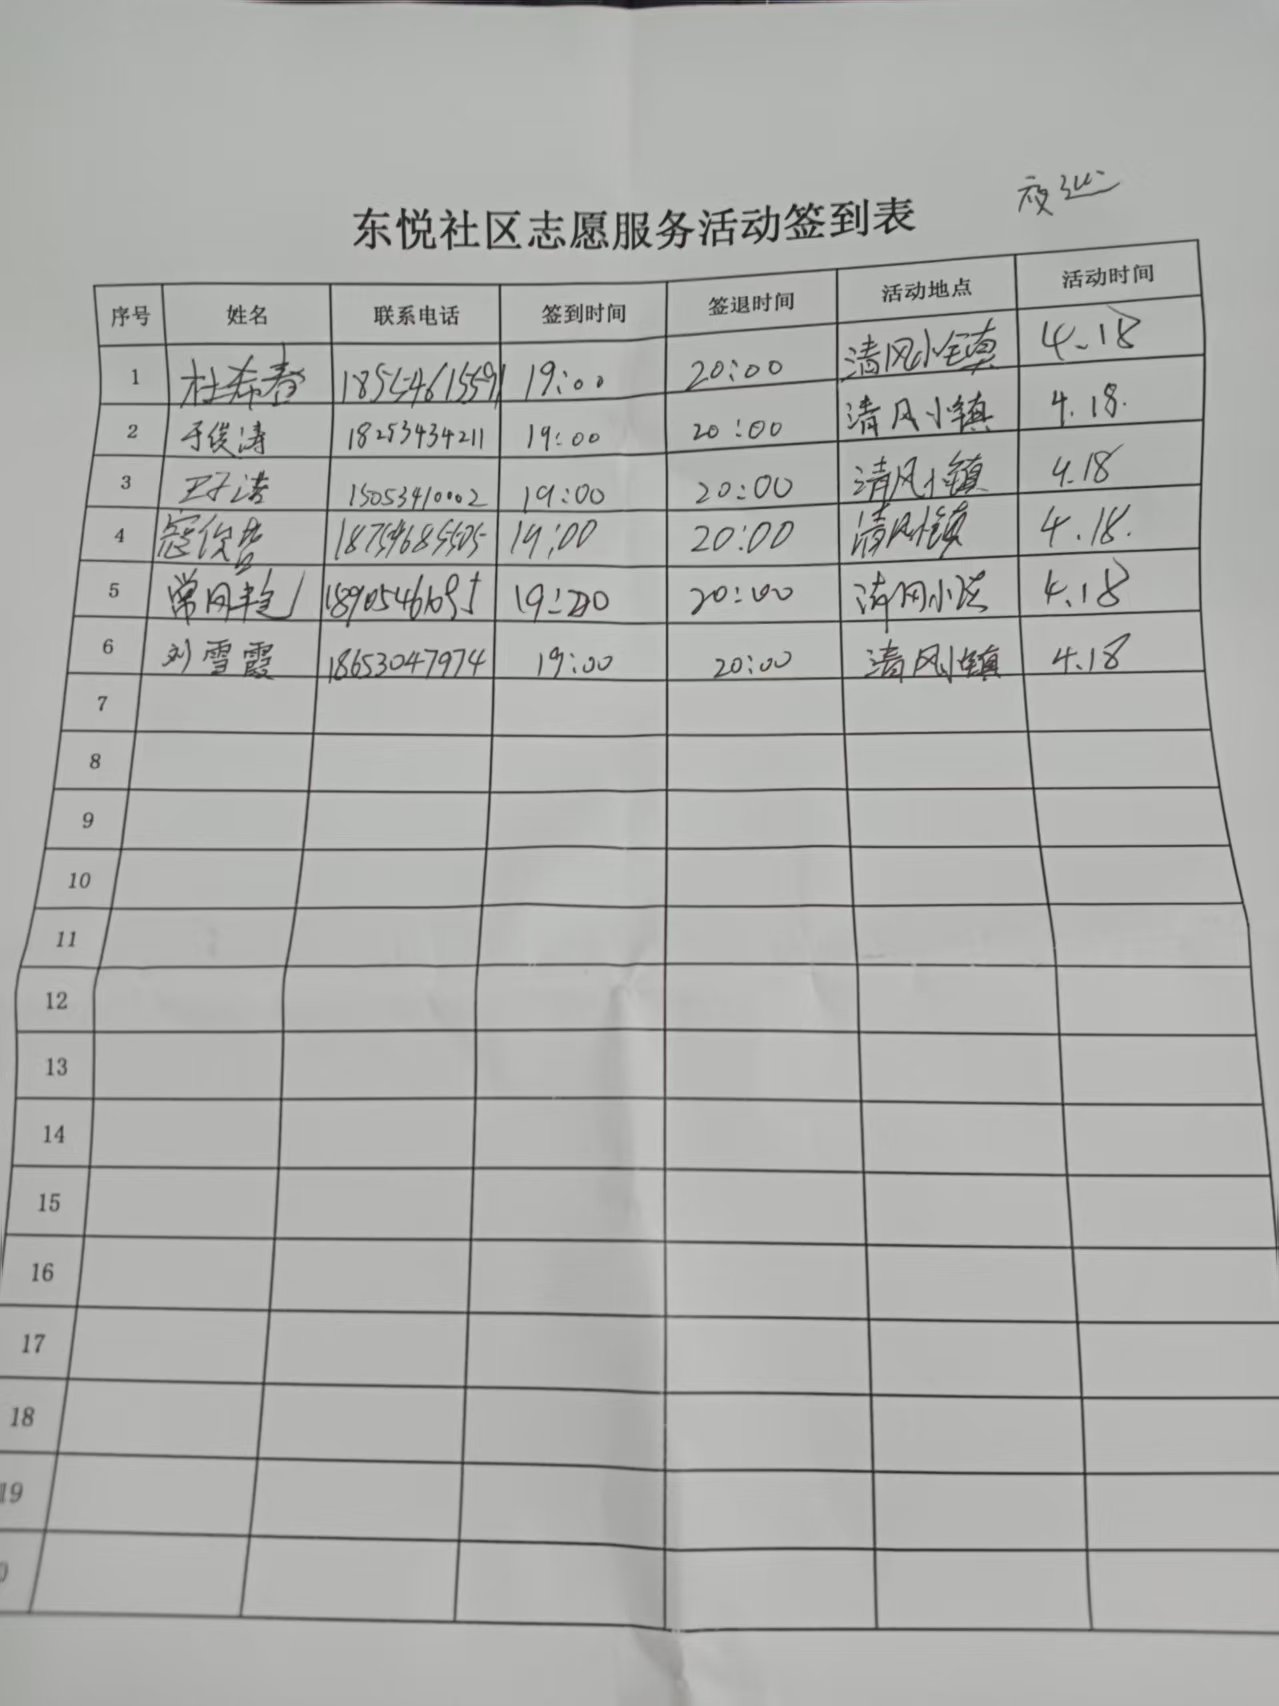 夜巡
东悦社区志愿服务活动签到表
序号 姓名 联系电话 签到时间 签退时间 活动地点 活动时间
1 杜希春 19:00 20:00 清风小镇 4.18
2 于俊涛 18253434211 19:00 20:00 清风小镇 4.18.
3 15053410002 19:00 20:00 清风小镇 4.18
4 18754685505 19:00 20:00 清风小镇 4.18.
5 20:00 清风小镇 4.18
6 刘雪霞 18653047974 19:00 20:00 清风小镇 4.18
7
8
9
10
11
12
13
14
15
16
17
18
19